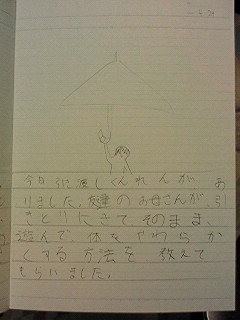 今日引き渡しくんれんが あ
りました。のお母さんが引
きとりにきて そのまま、
遊んで、体をやわらか
くする方法を教えて
もらいました。